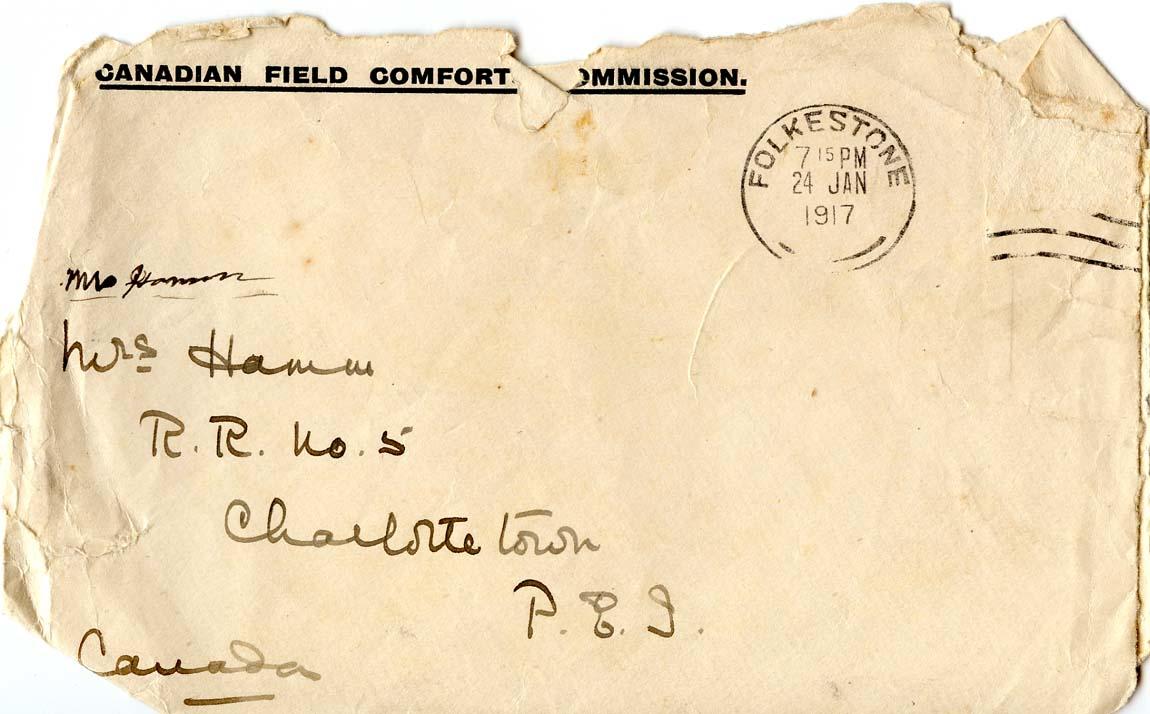 CANADIAN FIELD COMFORT OMMISSION.
FOLKESTONE
7 15 PM
24 JAN
1917
Mrs Hamm
Mrs Hamm
R. R. No. 5
Charlottetown
P. E. I.
Canada